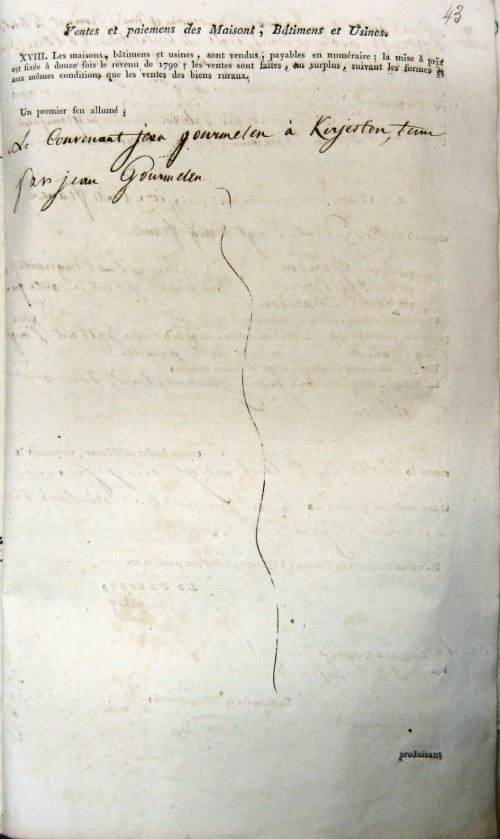 43
Ventes et paiemens des Maisons, Bâtimens et Usines.
XVIII. Les maisons, bâtimens et usines, sont vendus, payables en numéraire; la mise à prix
est fixée à douze fois le revenu de 1790; les ventes sont faites, au surplus, suivant les formes et
aux mêmes conditions que les ventes des biens ruraux.
Un premier feu allumé;
Le Convenant jean gourmelen à Kerjeston, tenu
par jean Gourmelen
produisant